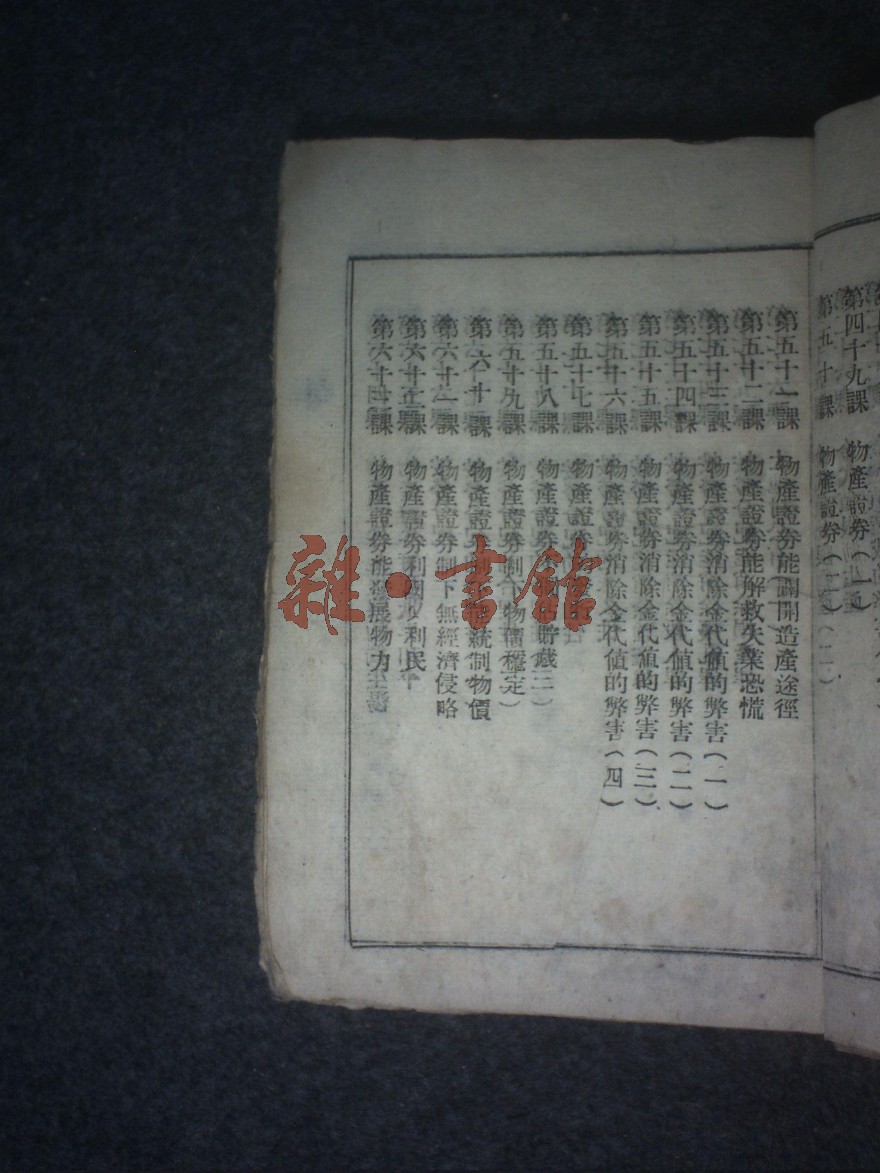 第四十九課 物產證券(一)
第五十課 物產證券(二)
第五十一課 物產證券能闢開造產途徑
第五十二課 物產證券能解救失業恐慌
第五十三課 物產證券消除金代值的弊害(一)
第五十四課 物產證券消除金代值的弊害(二)
第五十五課 物產證券消除金代值的弊害(三)
第五十六課 物產證券消除金代值的弊害(四)
第五十七課 物產證券
第五十八課 物產證券 貯藏(二)
第五十九課 物產證券制下物價穩定
第六十課 物產證券制 統制物價
第六十一課 物產證券制下無經濟侵略
第六十二課 物產證券利國利民
第六十三課 物產證券能發展物力
雜·書館